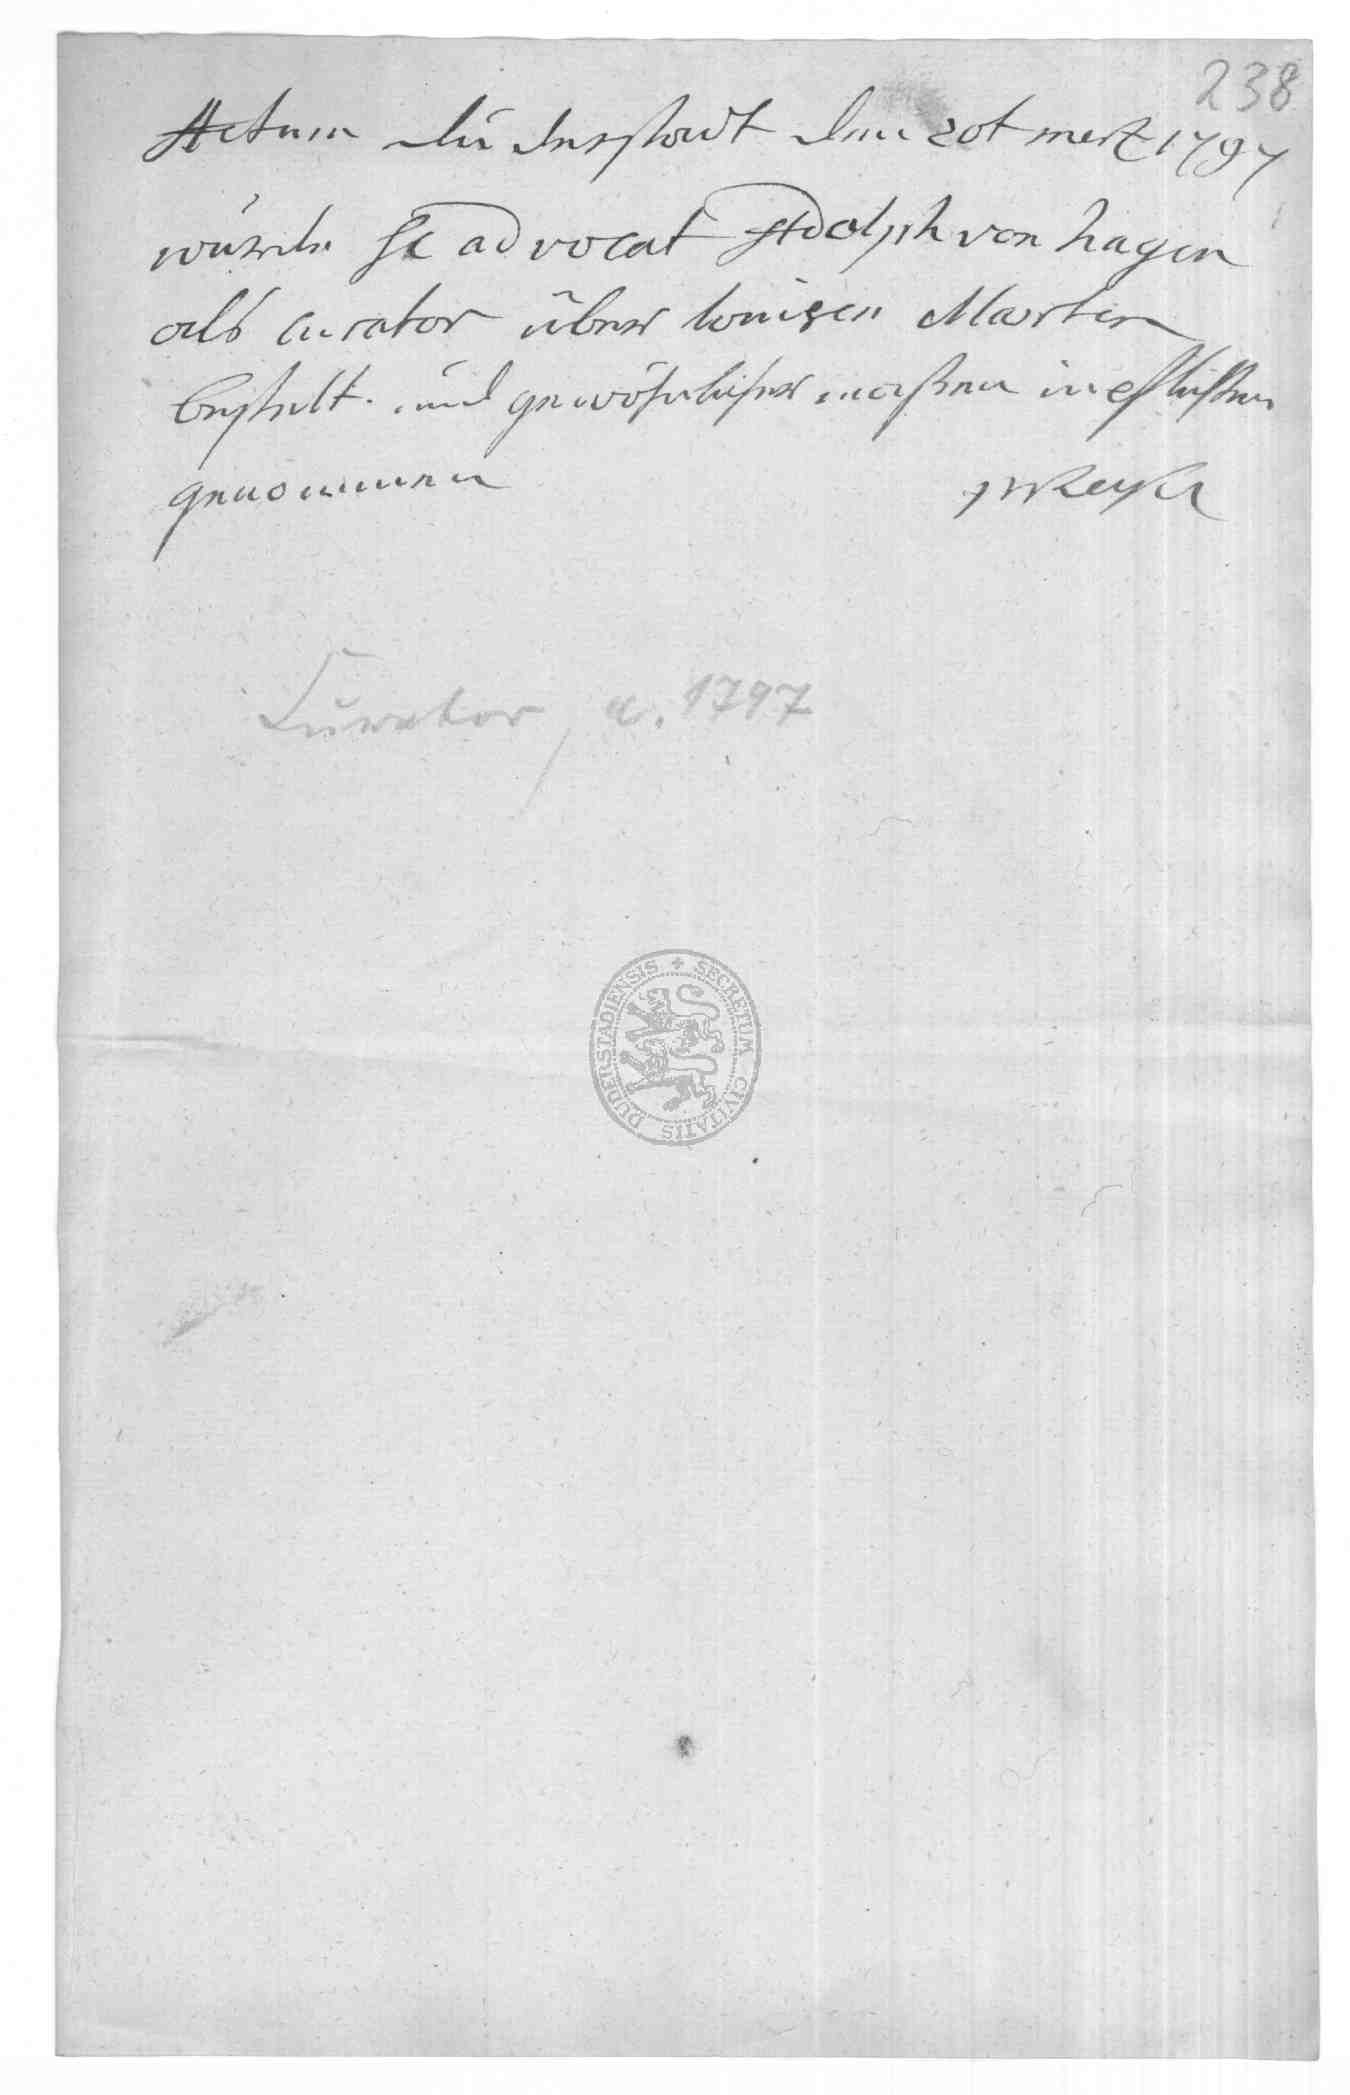 238
Actum Duderstadt den 20t mertz 1797
wurde H advocat Adolph von hagen
als curator über louisen Marten
bestelt. und gewöhnlicher maßen in pflichten
genommen
Curator, a. 1797
SECRETUM CIVITATIS DUDERSTADIENSIS